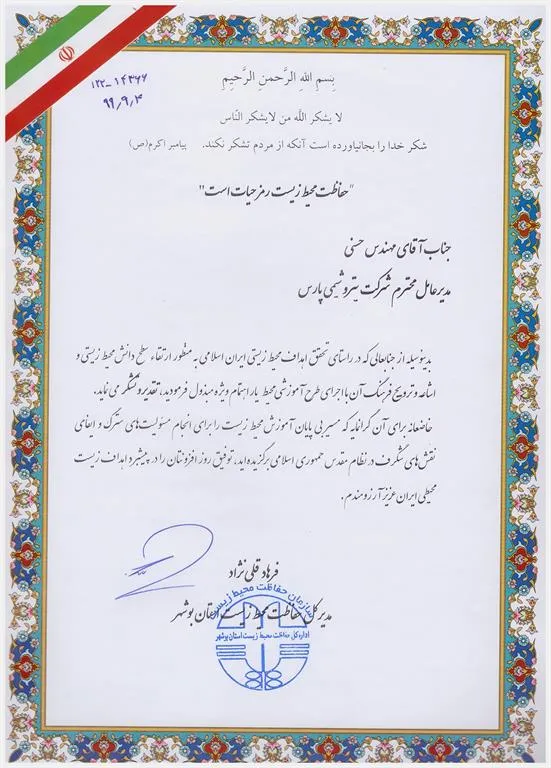 ۱۲۲-۱۴۳۶۶
۹۹٫۹٫۴
بِسمِ اللهِ الرَّحمنِ الرَّحیمِ
لا یشکر اللَّه من لایشکر النّاس
شکر خدا را بجانیاورده است آنکه از مردم تشکر نکند. پیامبر اکرم(ص)
"حفاظت محیط زیست رمز حیات است"
جناب آقای مهندس حسنی
مدیرعامل محترم شرکت پتروشیمی پارس
بدینوسیله از جنابعالی که در راستای تحقق اهداف محیط زیستی ایران اسلامی به منظور ارتقاء سطح دانش محیط زیستی و
اشاعه و ترویج فرهنگ آن با اجرای طرح آموزشی محیط یار اهتمام ویژه مبذول فرمودید، تقدیر و تشکر می نماید.
خاضعانه برای آن گرانمایه که مسیر بی پایان آموزش محیط زیست را برای انجام مسئولیت‌های سترگ و ایفای
نقش‌های شگرف در نظام مقدس جمهوری اسلامی برگزیده اید، توفیق روز افزونتان را در پیشبرد اهداف زیست
محیطی ایران عزیز آرزومندم.
فرهاد قلی نژاد
مدیرکل حفاظت محیط زیست استان بوشهر
سازمان حفاظت محیط زیست
اداره کل حفاظت محیط زیست استان بوشهر